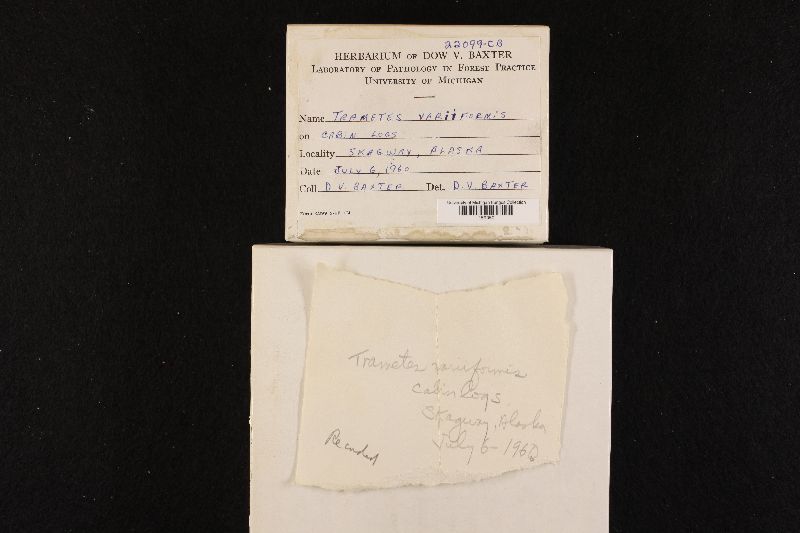 22099-CB
HERBARIUM OF DOW V. BAXTER
LABORATORY OF PATHOLOGY IN FOREST PRACTICE
UNIVERSITY OF MICHIGAN
Name TRAMETES VARIIFORMIS
on CABIN LOGS
Locality SKAGWAY, ALASKA
Date JULY 6, 1960
Coll. D. V. BAXTER Det. D. V. BAXTER
University of Michigan Fungus Collection
Trametes variiformis
cabin logs
Skagway, Alaska
July 6 - 1960
Recorded